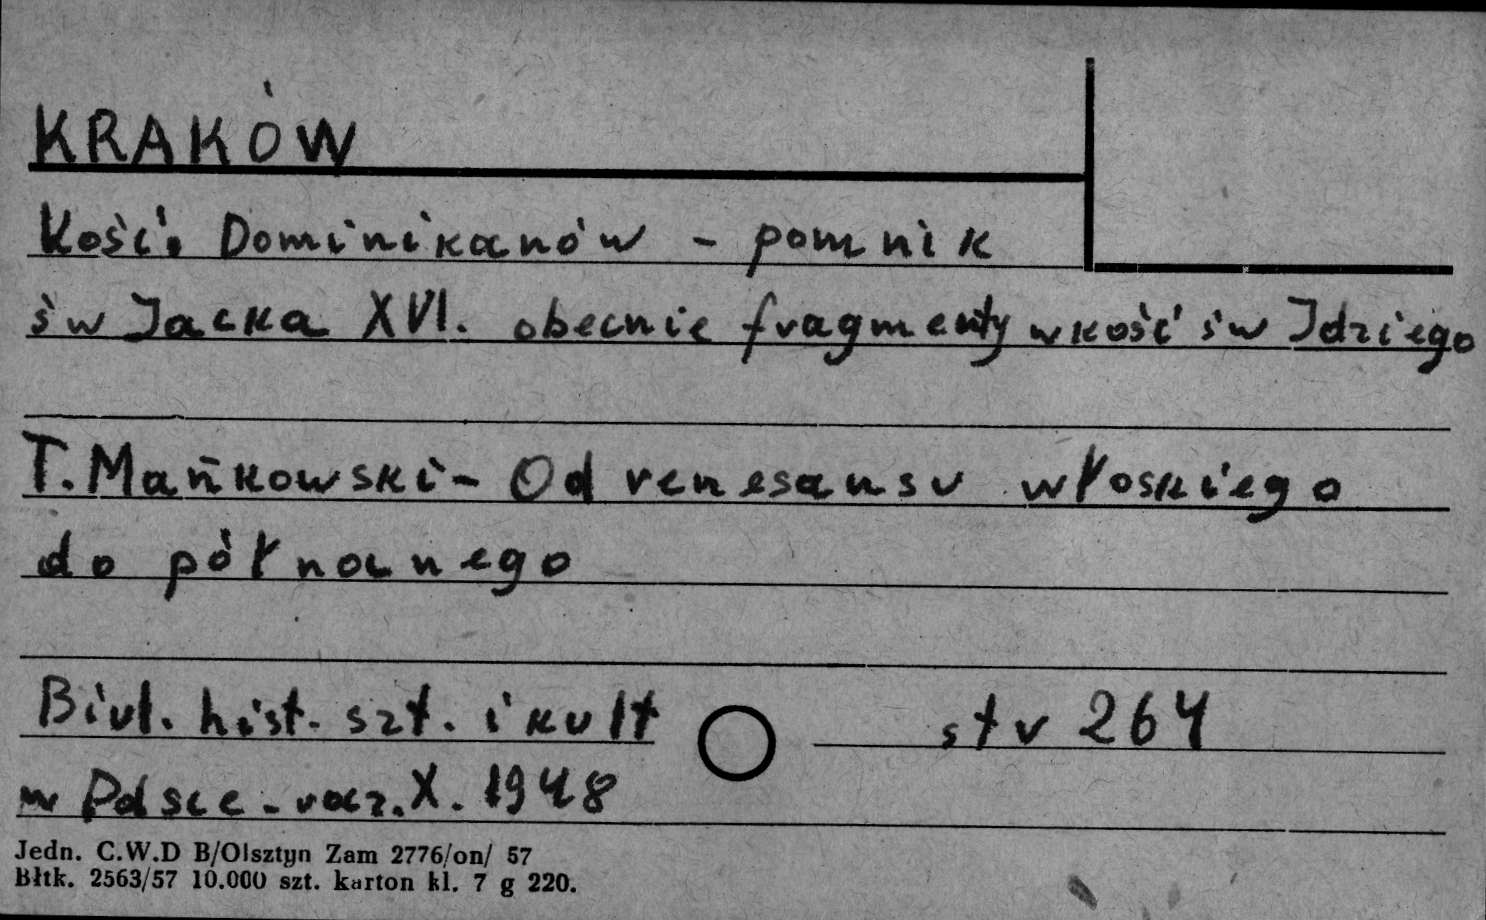 KRAKÓW
Kość. Dominikanów - pomnik
św Jacka XVI. obecnie fragmenty w kość św Idziego
T. Mańkowski - Od renesansu włoskiego
do północnego
Biul. hist. szt. i kult
str 264
w Polsce - rocz. X. 1948
Jedn. C.W.D B/Olsztyn Zam 2776/on/ 57
Błtk. 2563/57 10.000 szt. karton kl. 7 g 220.